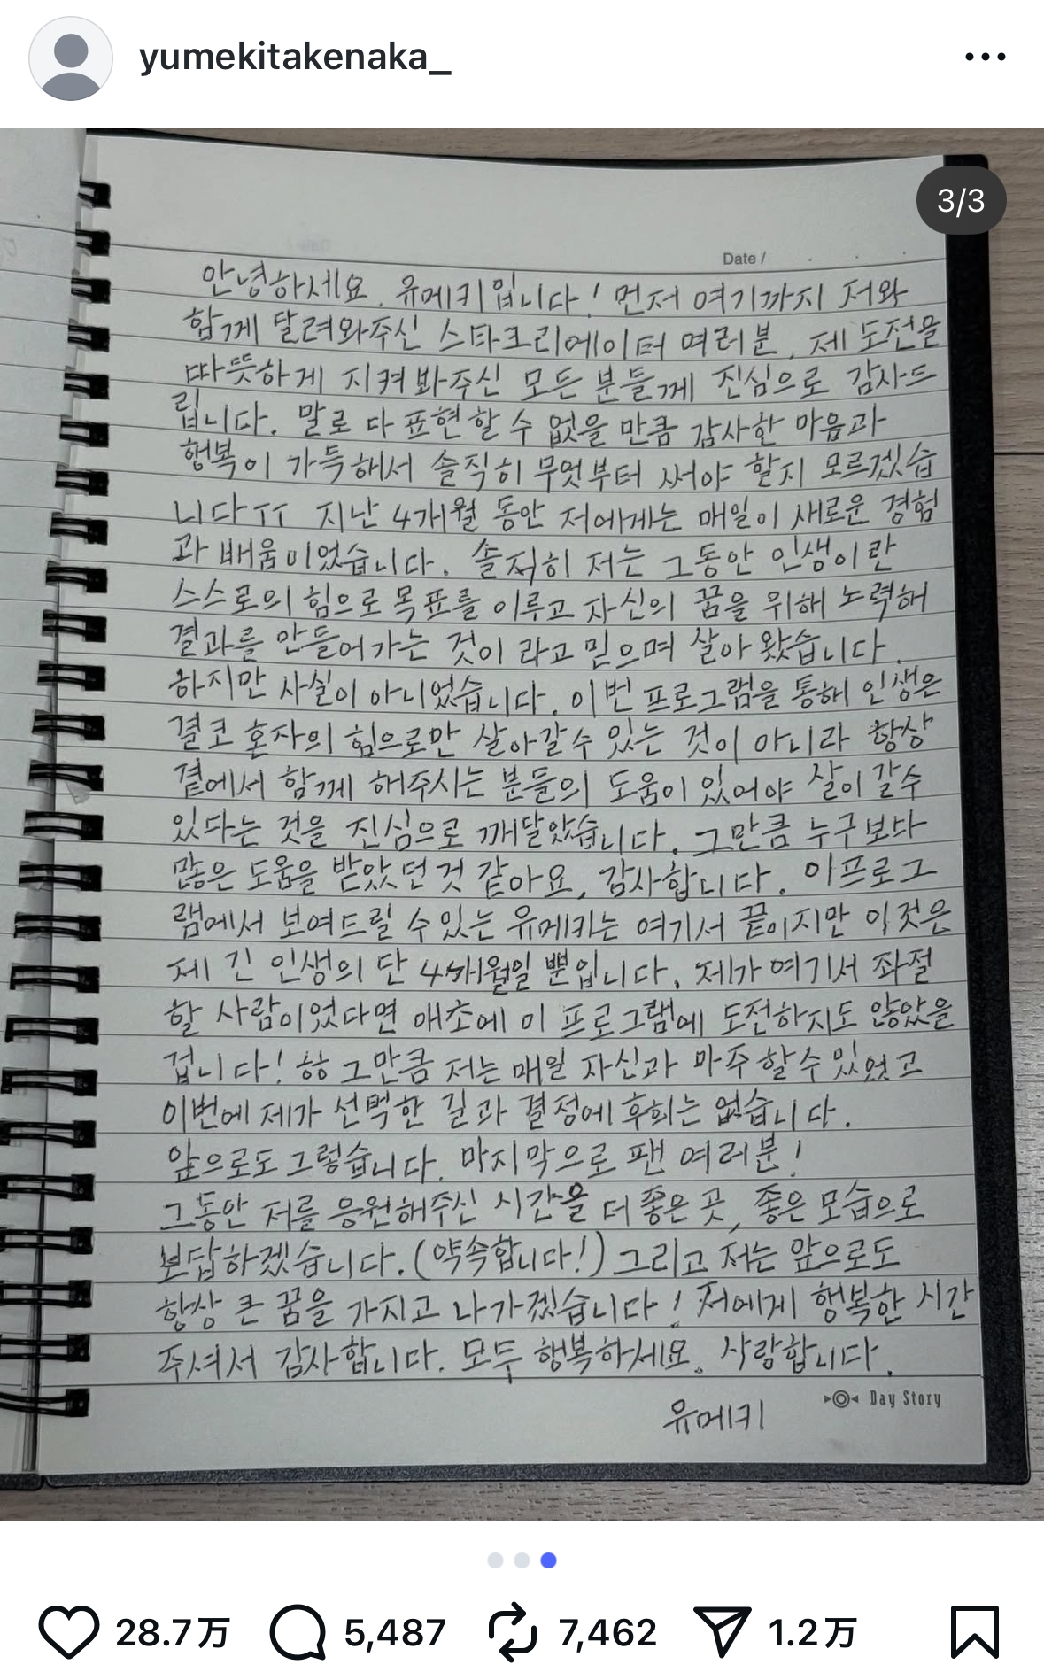 yumekitakenaka_
3/3
Date /
안녕하세요. 유메키입니다! 먼저 여기까지 저와
함께 달려와주신 스타크리에이터 여러분, 제 도전을
따뜻하게 지켜봐주신 모든 분들께 진심으로 감사드
립니다. 말로 다 표현할 수 없을 만큼 감사한 마음과
행복이 가득해서 솔직히 무엇부터 써야 할지 모르겠습
니다ㅠㅠ 지난 4개월 동안 저에게는 매일이 새로운 경험
과 배움이었습니다. 솔직히 저는 그동안 인생이란
스스로의 힘으로 목표를 이루고 자신의 꿈을 위해 노력해
결과를 만들어가는 것이라고 믿으며 살아 왔습니다.
하지만 사실이 아니었습니다. 이번 프로그램을 통해 인생은
결코 혼자의 힘으로만 살아갈 수 있는 것이 아니라 항상
곁에서 함께 해주시는 분들의 도움이 있어야 살이 갈수
있다는 것을 진심으로 깨달았습니다. 그만큼 누구보다
많은 도움을 받았던 것 같아요. 감사합니다. 이프로그
램에서 보여드릴 수 있는 유메키는 여기서 끝이지만 이것은
제 긴 인생의 단 4개월일 뿐입니다. 제가 여기서 좌절
할 사람이었다면 애초에 이 프로그램에 도전하지도 않았을
겁니다! ㅎㅎ 그만큼 저는 매일 자신과 마주할 수 있었고
이번에 제가 선택한 길과 결정에 후회는 없습니다.
앞으로도 그렇습니다. 마지막으로 팬 여러분!
그동안 저를 응원해주신 시간을 더 좋은 곳, 좋은 모습으로
보답하겠습니다. (약속합니다!) 그리고 저는 앞으로도
항상 큰 꿈을 가지고 나가겠습니다! 저에게 행복한 시간
주셔서 감사합니다. 모두 행복하세요. 사랑합니다.
Day Story
유메키
28.7万 5,487 7,462 1.2万